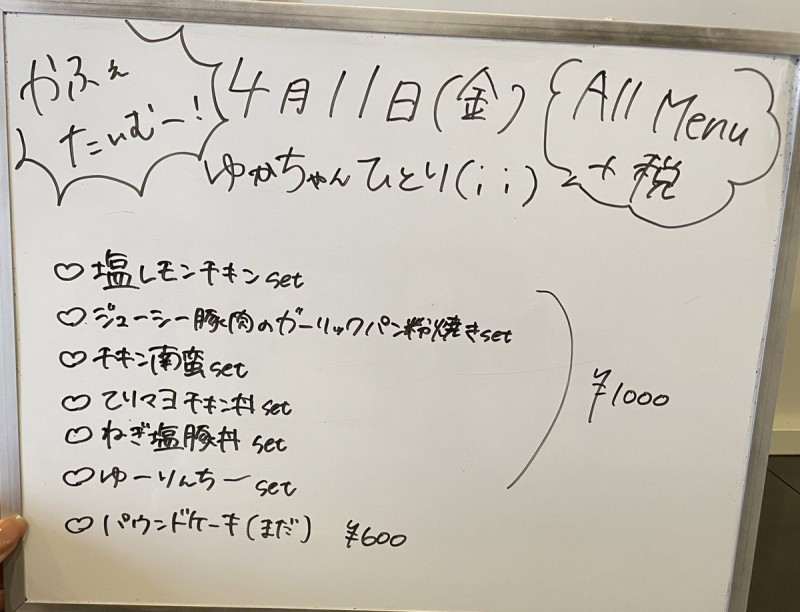 かふぇ
たいむー!
4月11日(金)
ゆかちゃんひとり(; ;)
All Menu
+税
♡塩レモンチキンset
♡ジューシー豚肉のガーリックパン粉焼きset
♡チキン南蛮set
♡てりマヨチキン丼set
♡ねぎ塩豚丼set
♡ゆーりんちーset
¥1000
♡パウンドケーキ(まだ) ¥600